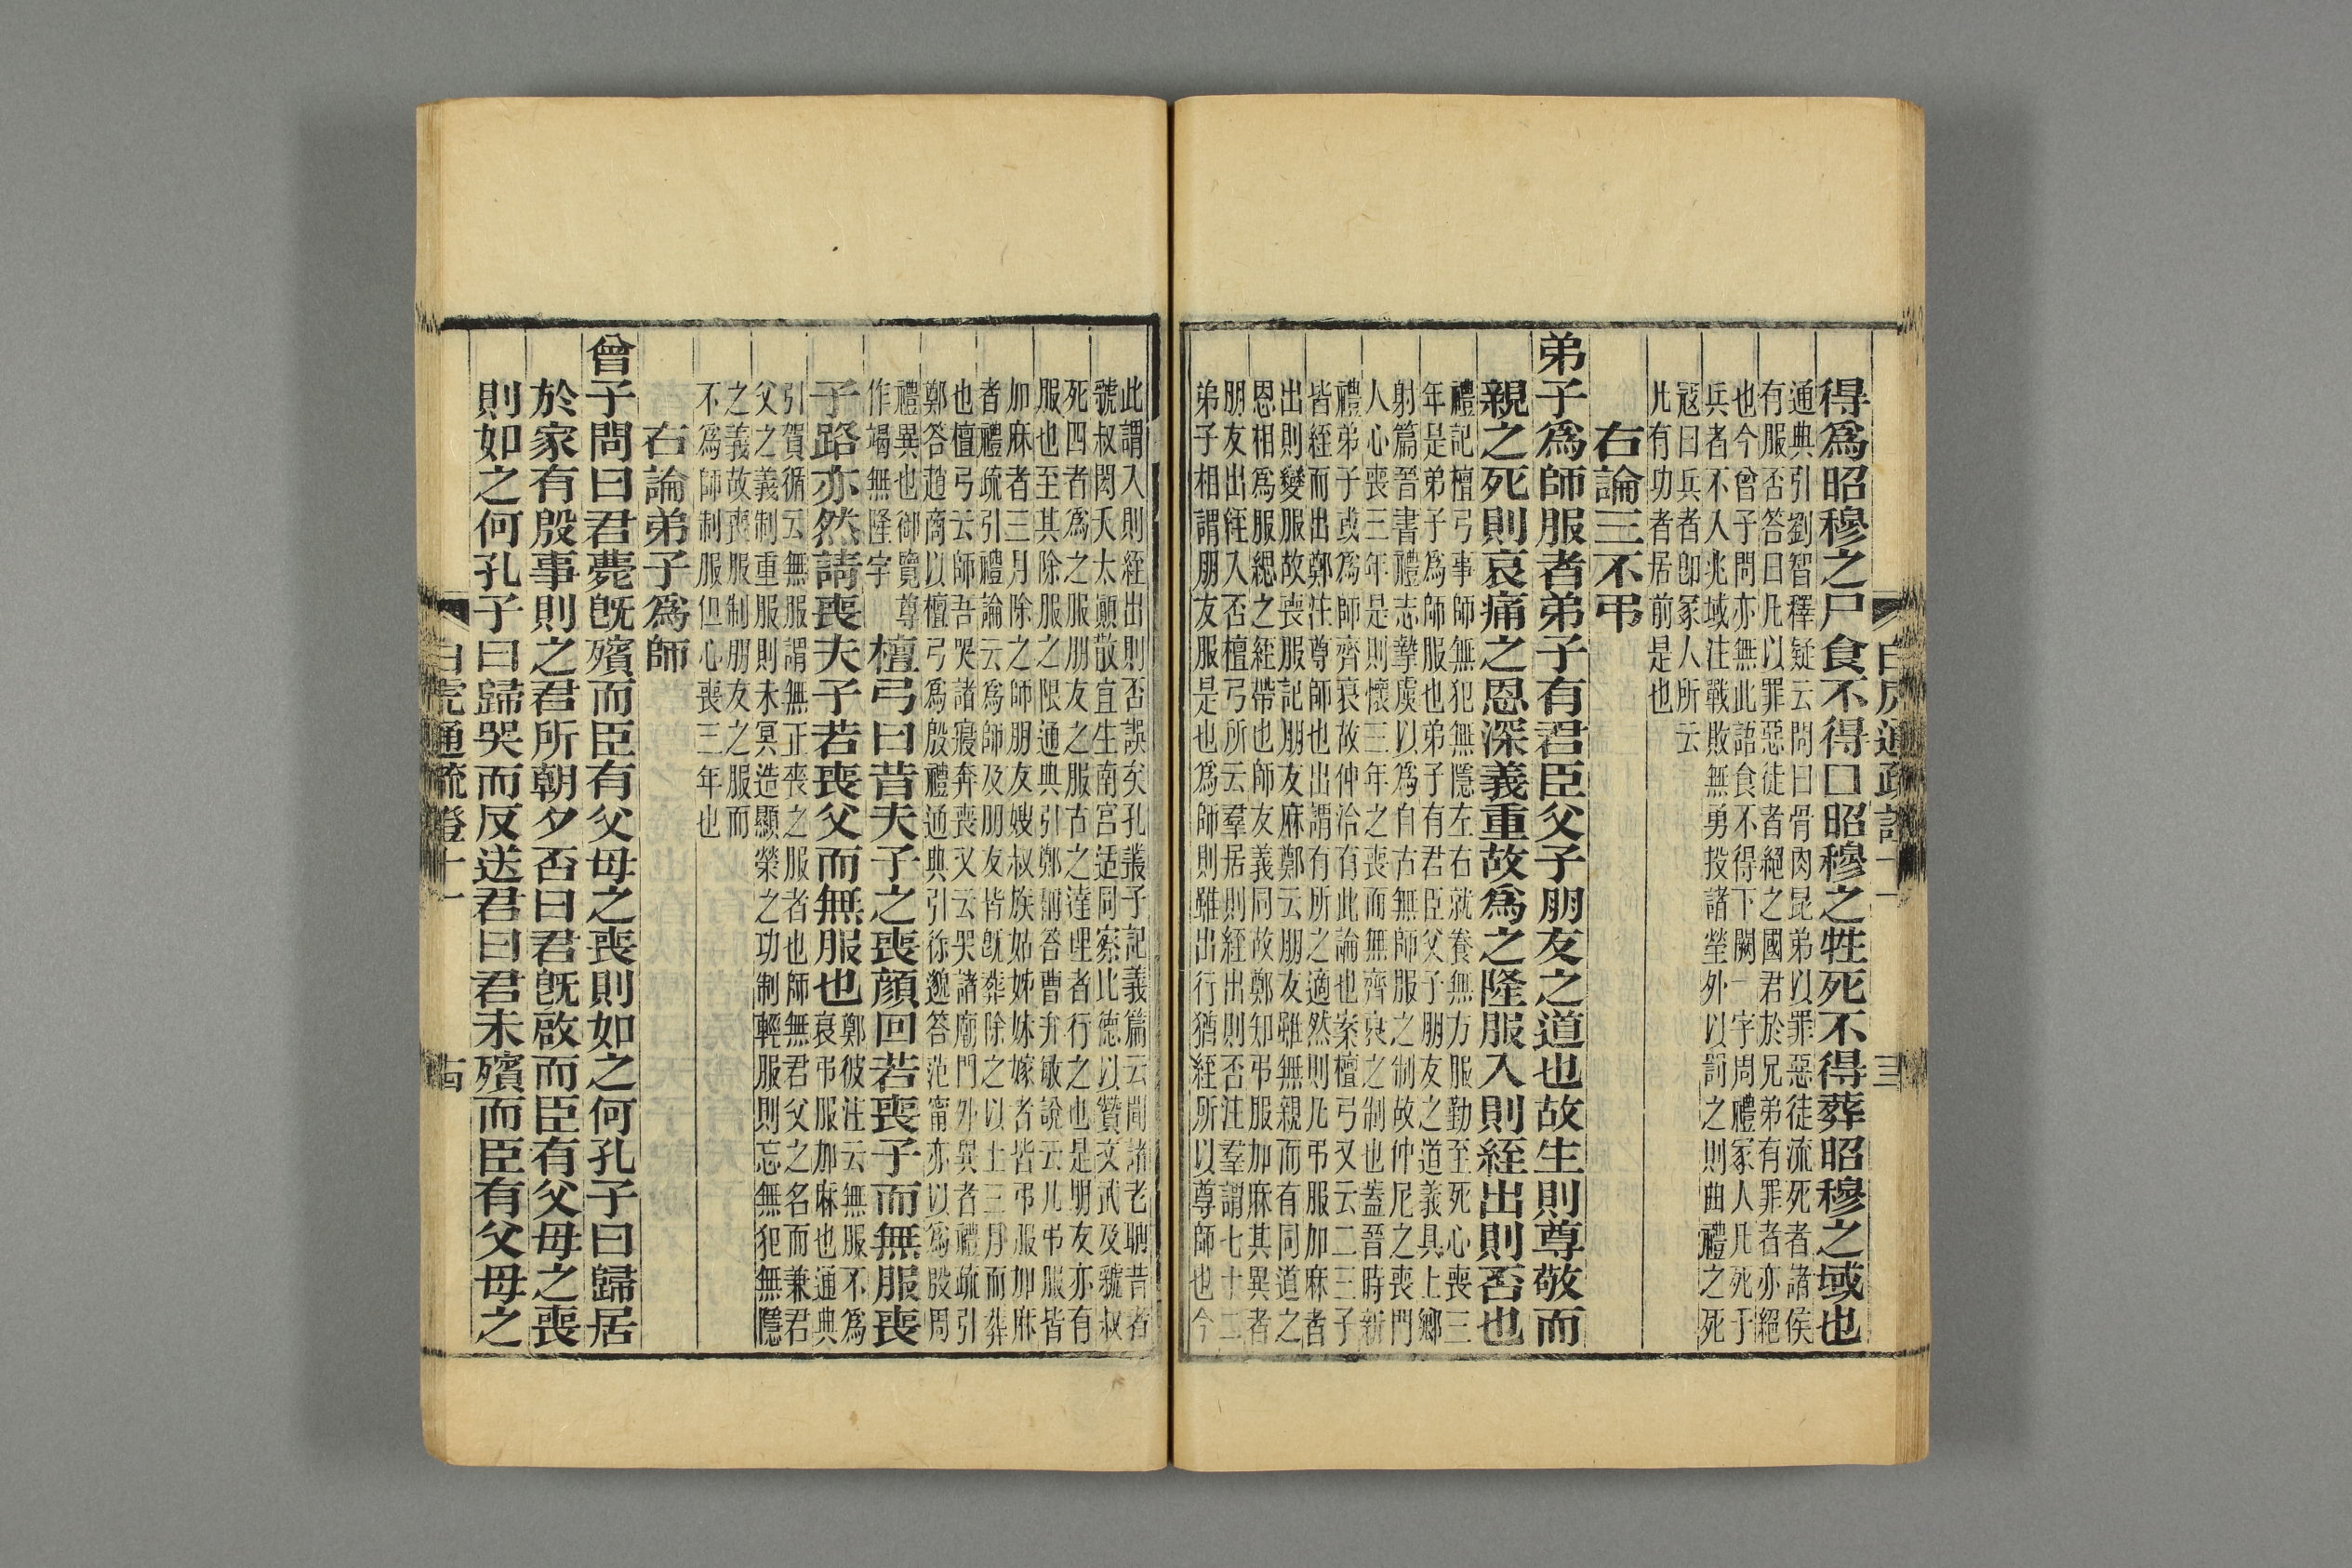 白虎通疏證十一
得爲昭穆之尸食不得口昭穆之牲死不得葬昭穆之域也
通典引劉智釋疑云問曰骨肉昆弟以罪惡徒流死者諸侯
有服否答曰凡以罪惡徒者絕之國君於兄弟有罪者亦絕
也今曾子問亦無此語食不得下闕一字周禮冢人凡死于
兵者不入兆域注戰敗無勇投諸塋外以罰之則曲禮之死
寇曰兵者卽冢人所云
凡有功者居前是也
右論三不弔
弟子爲師服者弟子有君臣父子朋友之道也故生則尊敬而
親之死則哀痛之恩深義重故爲之隆服入則絰出則否也
禮記檀弓事師無犯無隱左右就養無方服勤至死心喪三
年是弟子爲師服也弟子有君臣父子朋友之道義具上鄉
射篇晉書禮志摯虞以爲自古無師服之制故仲尼之喪門
人心喪三年是則懷三年之喪而無齊衰之制也蓋晉時新
禮弟子或爲師齊衰故仲洽有此論也案檀弓又云二三子
皆絰而出鄭注尊師也出謂有所之適然則凡弔服加麻者
出則變服故喪服記朋友麻鄭云朋友雖無親而有同道之
恩相爲服緦之絰帶也師友義同故鄭知弔服加麻其異者
朋友出絰入否檀弓所云羣居則絰出則否注羣謂七十二
弟子相謂朋友服是也爲師則雖出行猶絰所以尊師也今
此謂入則絰出則否誤矣孔叢子記義篇云聞諸老聃昔者
虢叔閎夭太顚散宜生南宮适同寮比德以贊文武及虢叔
死四者爲之服朋友之服古之達理者行之也是朋友亦有
服也至其除服之限通典引鄭稱答曹弁敏說云凡弔服皆
加麻者三月除之師朋友嫂叔族姑姊妹嫁者皆弔服加麻
者禮疏引禮論云爲師及朋友皆旣葬除之以士三月而葬
也檀弓云師吾哭諸寢奔喪又云哭諸廟門外異者禮疏引
鄭答趙商以檀弓爲殷禮通典引徐邈答范甯亦以爲殷周
禮異也御覽尊
作竭無隆字
檀弓曰昔夫子之喪顏回若喪子而無服喪
子路亦然請喪夫子若喪父而無服也
鄭彼注云無服不爲
衰弔服加麻也通典
引賀循云無服謂無正喪之服者也師無君父之名而兼君
父之義制重服則未冥造顯榮之功制輕服則忘無犯無隱
之義故喪服制朋友之服而
不爲師制服但心喪三年也
右論弟子爲師
曾子問曰君薨旣殯而臣有父母之喪則如之何孔子曰歸居
於家有殷事則之君所朝夕否曰君旣啟而臣有父母之喪
則如之何孔子曰歸哭而反送君曰君未殯而臣有父母之
白虎通疏證十一
古